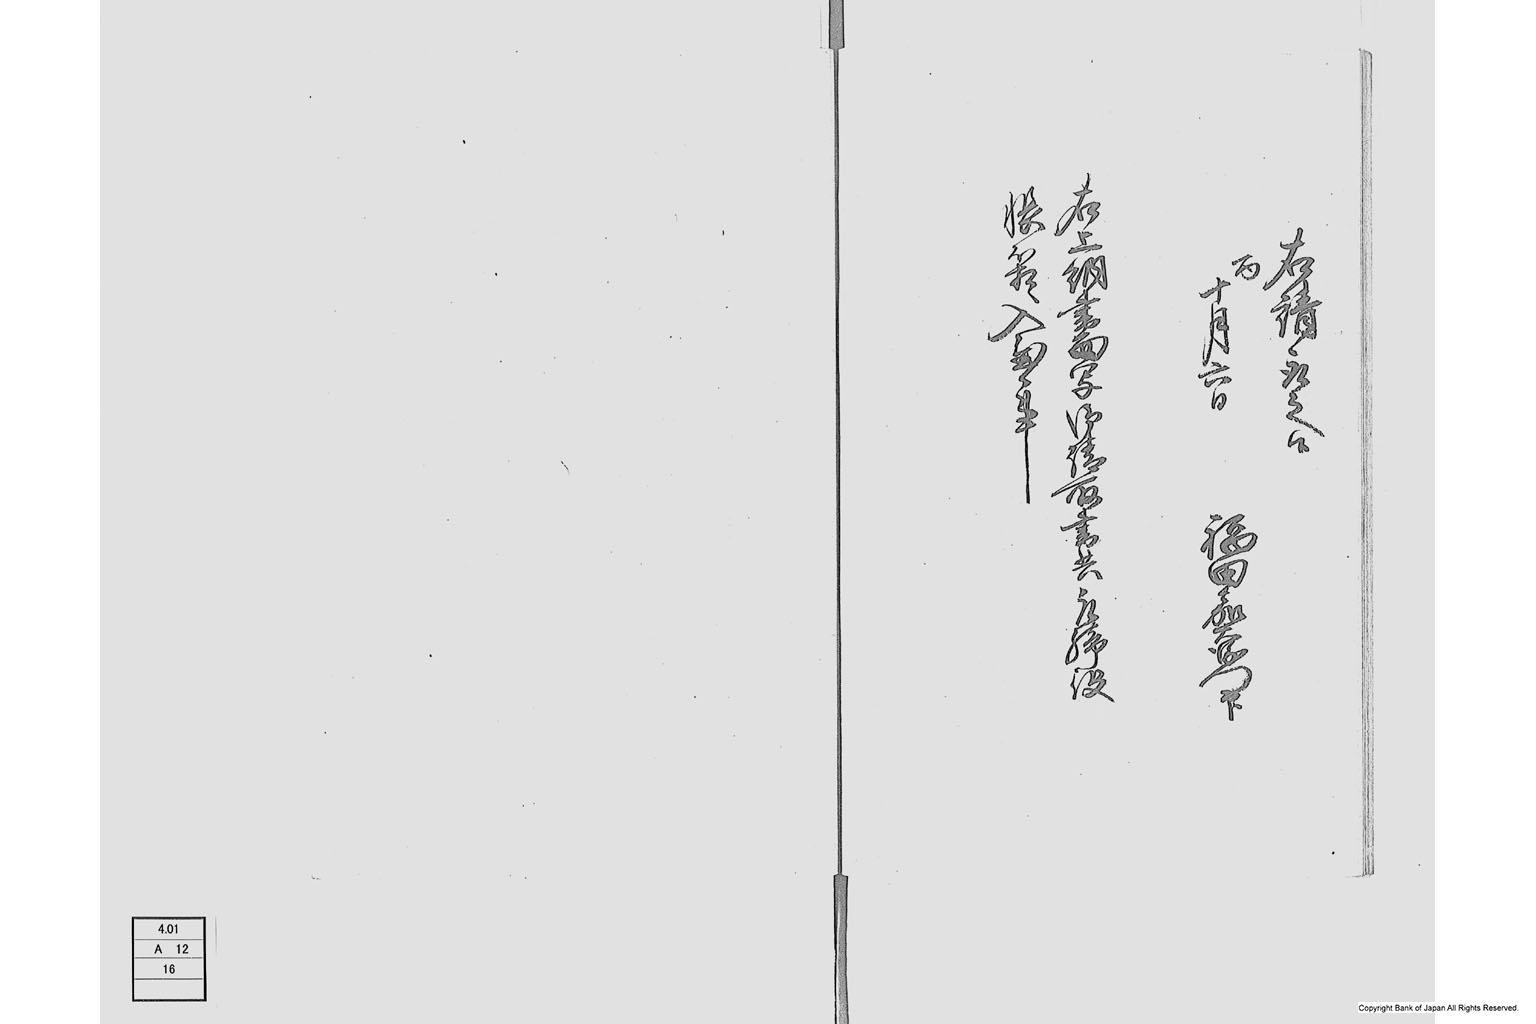 右請取之候
丙
十月六日
福田嘉左衛門印
右上納書面写御請取書共
役
帳箱入置候事
4.01
A 12
16
Copyright Bank of Japan All Rights Reserved.